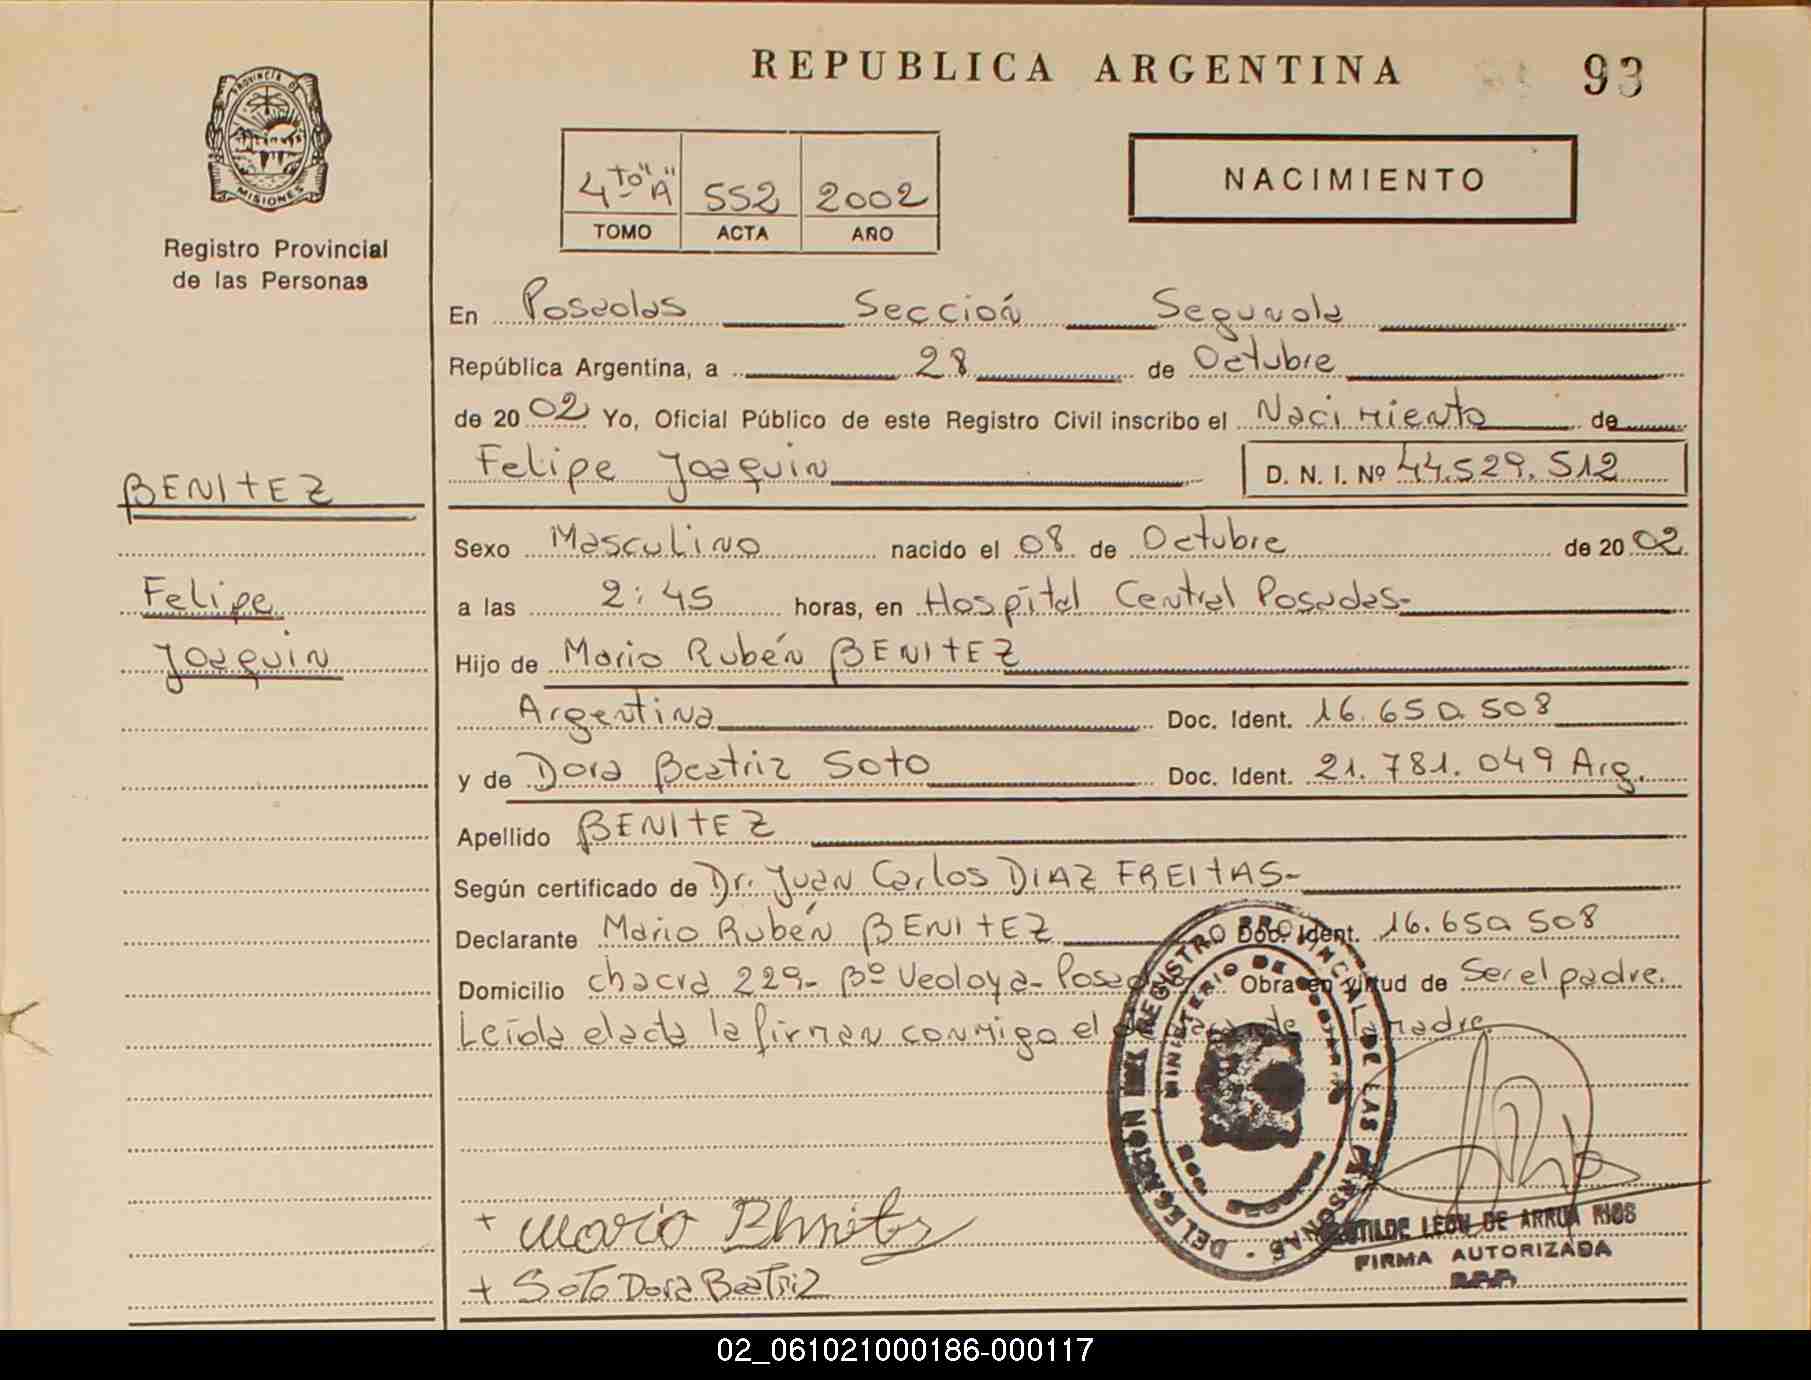 REPUBLICA ARGENTINA
93
PROVINCIA DE
MISIONES
Registro Provincial
de las Personas
4to "A" 552 2002
TOMO ACTA AÑO
NACIMIENTO
En Posadas Sección Segunda
República Argentina, a 28 de Octubre
de 2002 Yo, Oficial Público de este Registro Civil inscribo el Nacimiento de
Felipe Joaquin D. N. I. Nº 44.529.512
BENITEZ
Felipe
Joaquin
Sexo Masculino nacido el 08 de Octubre de 2002
a las 2:45 horas, en Hospital Central Posadas-
Hijo de Mario Rubén BENITEZ
Argentina Doc. Ident. 16.650.508
y de Dora Beatriz Soto Doc. Ident. 21.781.049 Arg.
Apellido BENITEZ
Según certificado de Dr. Juan Carlos DIAZ FREITAS-
Declarante Mario Rubén BENITEZ Doc. Ident. 16.650.508
Domicilio chacra 229- Bº Vedoya- Posadas Obra en virtud de Ser el padre.
Leída el acta la firman conmigo el declarante la madre.
DELEGACIÓN DEL REGISTRO PROVINCIAL DE LAS PERSONAS -
MINISTERIO DE GOBIERNO
+ Mario Benitez
+ Soto Dora Beatriz
LEON DE ARRUA RIOS
FIRMA AUTORIZADA
R.P.P.
02_061021000186-000117